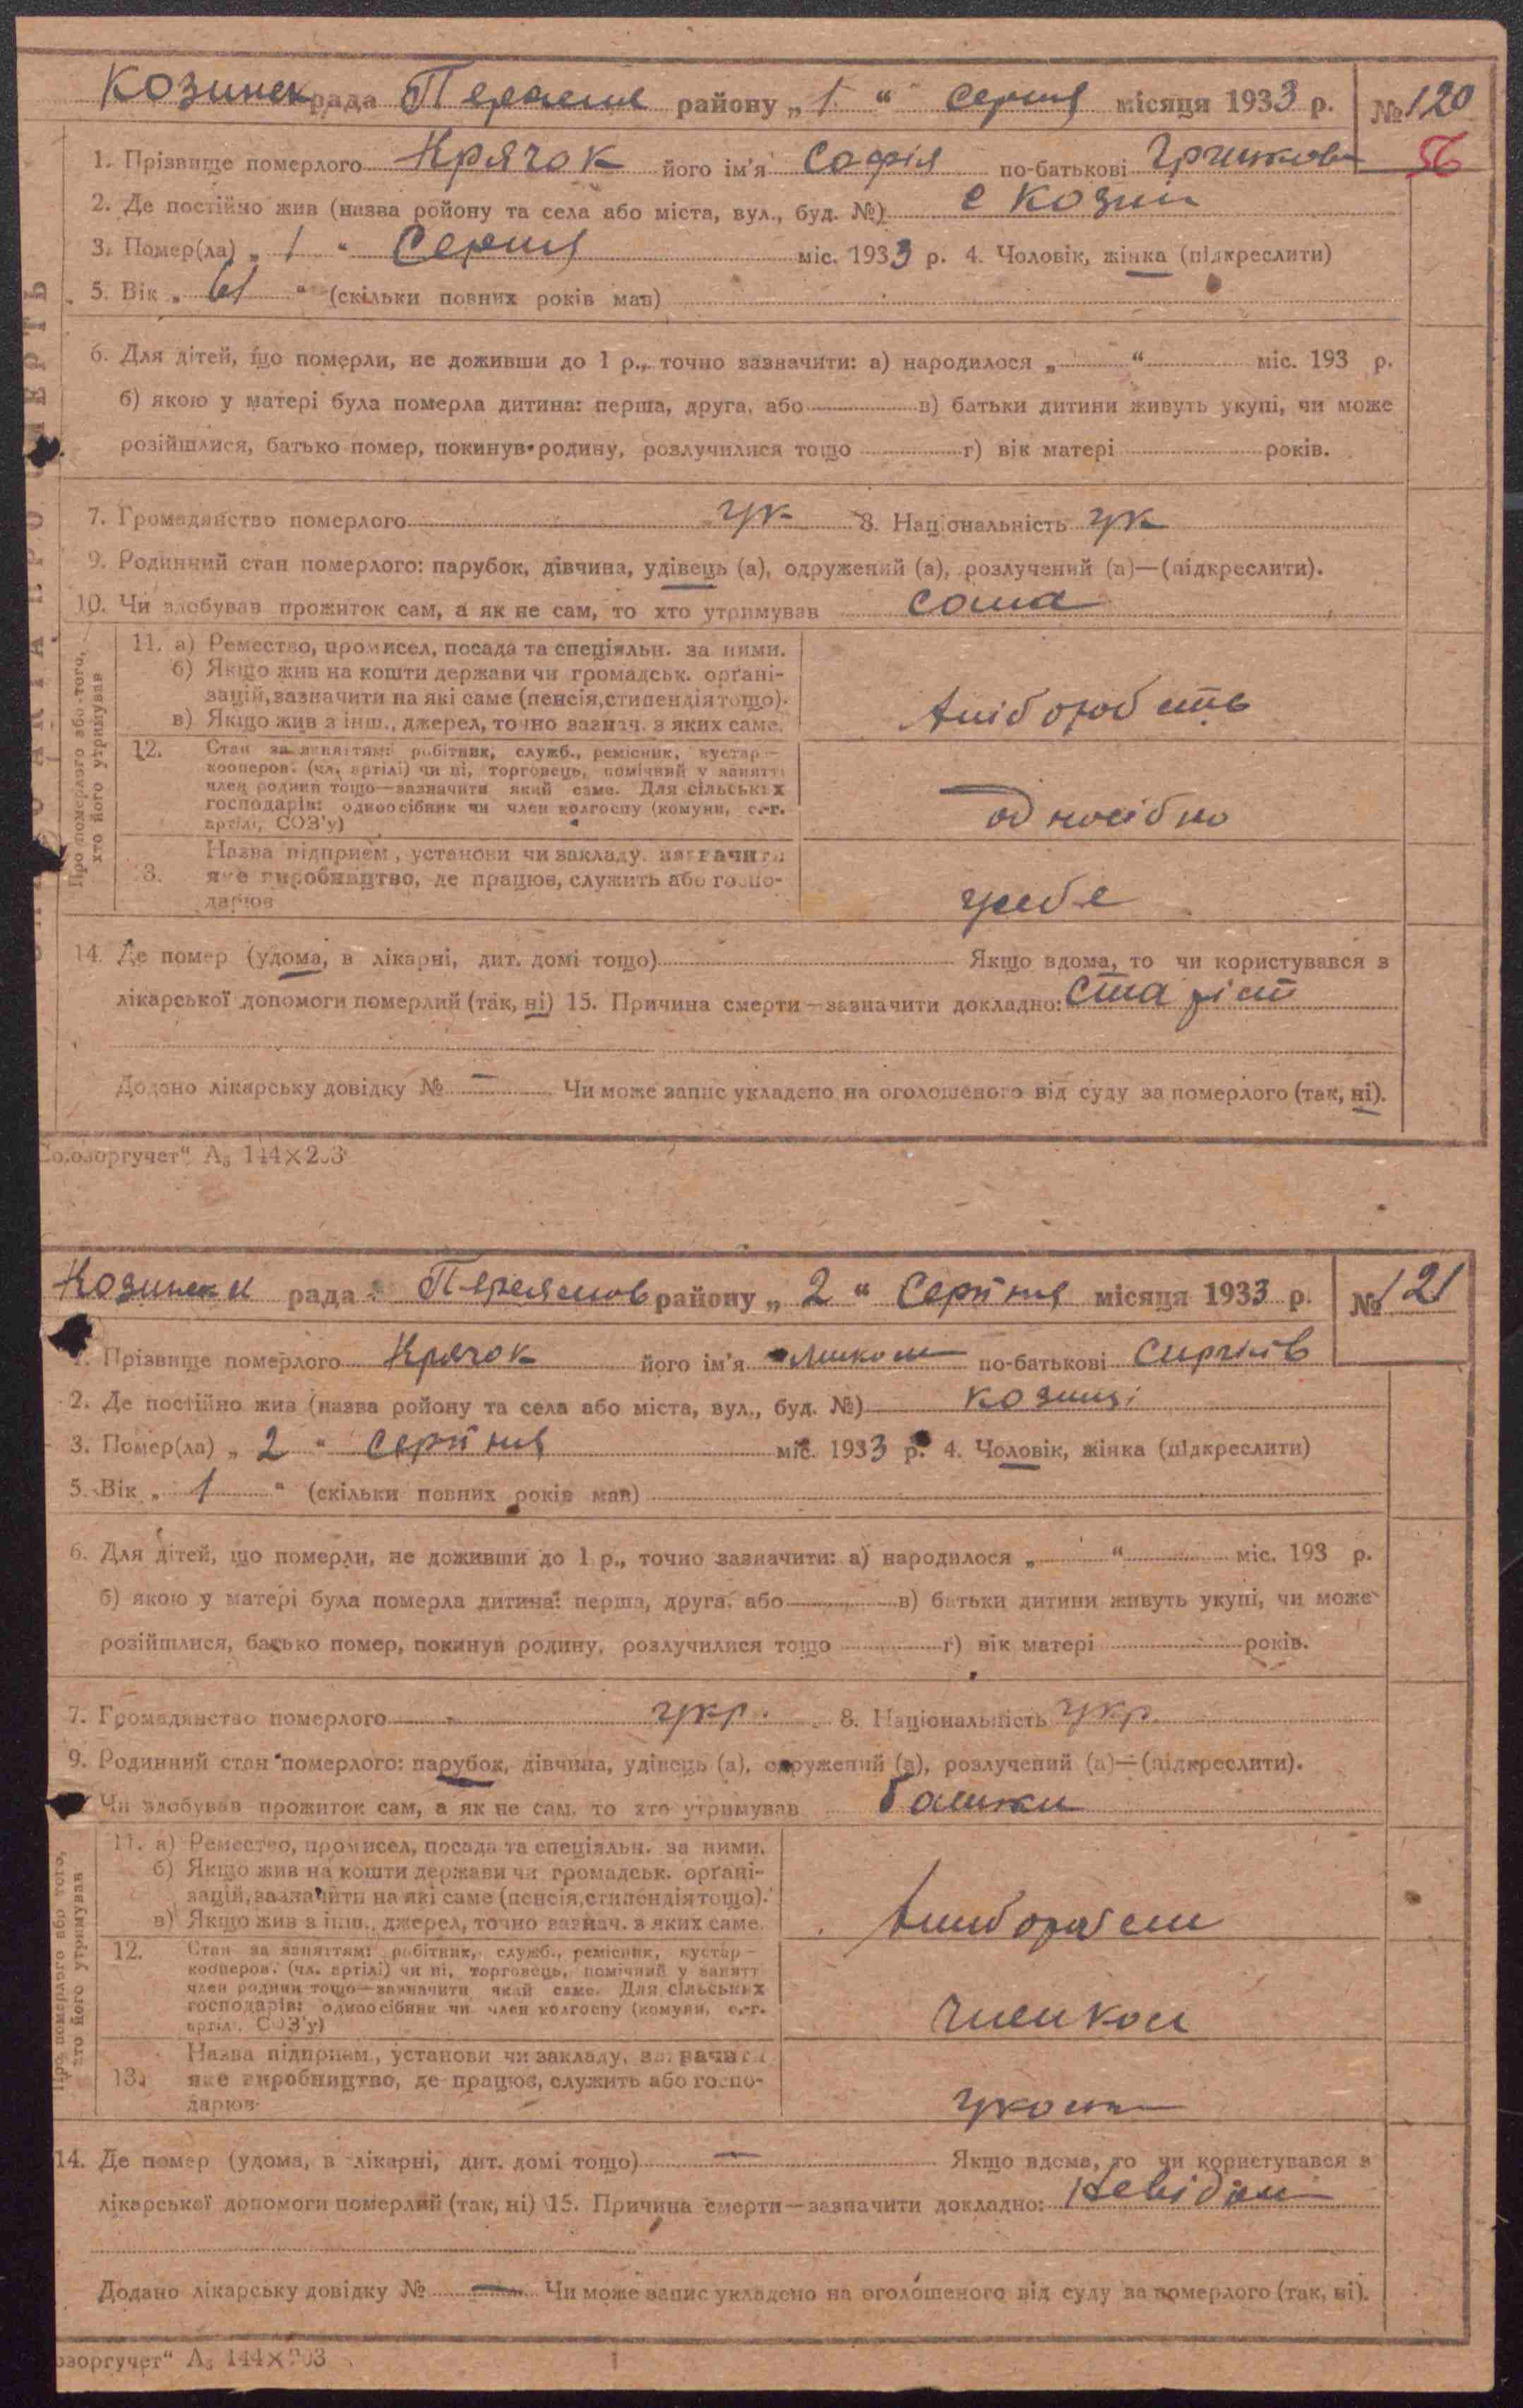 Козинск рада Переясл району „ 1 “ серпня місяця 1933 р. № 120
56
1. Прізвище померлого Крячок його ім'я Софія по-батькові Грицькова
2. Де постійно жив (назва ройону та села або міста, вул., буд. №) с Козин
3. Помер(ла) „ 1 “ Серпня міс. 1933 р. 4. Чоловік, жінка (підкреслити)
5. Вік „ 61 “ (скільки повних років мав)
6. Для дітей, що померли, не доживши до 1 р., точно зазначити: а) народилося „ “ міс. 193 р.
б) якою у матері була померла дитина: перша, друга, або в) батьки дитини живуть укупі, чи може
розійшлися, батько помер, покинув родину, розлучилися тощо г) вік матері років.
7. Громадянство померлого ук 8. Національність ук
9. Родинний стан померлого: парубок, дівчина, удівець (а), одружений (а), розлучений (а)—(підкреслити).
10. Чи здобував прожиток сам, а як не сам, то хто утримував сама
Про померлого або того, хто його утримував
11. а) Ремество, промисел, посада та спеціяльн. за ними.
б) Якщо жив на кошти держави чи громадськ. орґані-
зацій, зазначити на які саме (пенсія, стипендія тощо).
в) Якщо жив з інш., джерел, точно зазнач. з яких саме.
12. Стан за заняттям: робітник, служб., ремісник, кустар—
кооперов. (чл. артілі) чи ні, торговець, помічний у занятті
член родини тощо—зазначити який саме. Для сільських
господарів: одноосібник чи член колгоспу (комуни, с.-г.
артілі, СОЗ'у)
односібно
13. Назва підприєм., установи чи закладу, зазначити
яке виробництво, де працює, служить або госпо-
дарює
у себе
14. Де помер (удома, в лікарні, дит. домі тощо) Якщо вдома, то чи користувався з
лікарської допомоги померлий (так, ні) 15. Причина смерти—зазначити докладно: старіст
Додано лікарську довідку № — Чи може запис укладено на оголошеного від суду за померлого (так, ні).
Союзоргучет“ А₅ 144×203
Козинск рада Переяслов району „ 2 “ Серпня місяця 1933 р. № 121
1. Прізвище померлого Крячок його ім'я по-батькові
2. Де постійно жив (назва ройону та села або міста, вул., буд. №) Козинці
3. Помер(ла) „ 2 “ Серпня міс. 1933 р. 4. Чоловік, жінка (підкреслити)
5. Вік „ 1 “ (скільки повних років мав)
6. Для дітей, що померли, не доживши до 1 р., точно зазначити: а) народилося „ “ міс. 193 р.
б) якою у матері була померла дитина: перша, друга, або в) батьки дитини живуть укупі, чи може
розійшлися, батько помер, покинув родину, розлучилися тощо г) вік матері років.
7. Громадянство померлого укр. 8. Національність укр
9. Родинний стан померлого: парубок, дівчина, удівець (а), одружений (а), розлучений (а)—(підкреслити).
Чи здобував прожиток сам, а як не сам, то хто утримував батьки
Про померлого або того, хто його утримував
11. а) Ремество, промисел, посада та спеціяльн. за ними.
б) Якщо жив на кошти держави чи громадськ. орґані-
зацій, зазначити на які саме (пенсія, стипендія тощо).
в) Якщо жив з інш., джерел, точно зазнач. з яких саме.
12. Стан за заняттям: робітник, служб., ремісник, кустар—
кооперов. (чл. артілі) чи ні, торговець, помічний у занятт
член родини тощо—зазначити який саме. Для сільських
господарів: одноосібник чи член колгоспу (комуни, с.-г.
артілі, СОЗ'у)
13. Назва підприєм., установи чи закладу, зазначити
яке виробництво, де працює, служить або госпо-
дарює
14. Де помер (удома, в лікарні, дит. домі тощо) — Якщо вдома, то чи користувався з
лікарської допомоги померлий (так, ні) 15. Причина смерти—зазначити докладно: невідом
Додано лікарську довідку № — Чи може запис укладено на оголошеного від суду за померлого (так, ні).
озоргучет“ А₅ 144×203